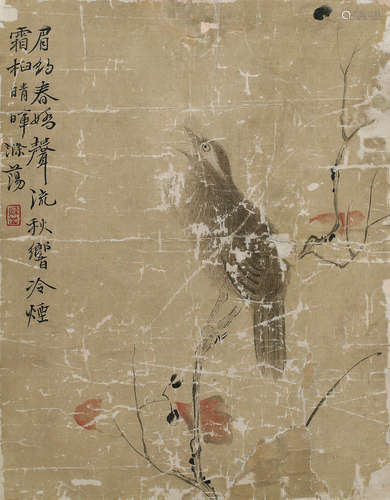 眉約春嬌聲流秋響冷煙
霜柏晴暉滌蕩